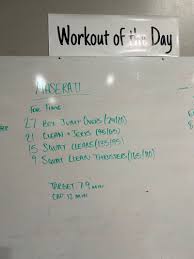 Workout of the Day
MASERATI
FOR TIME
27 BOX JUMP OVERS (24/20)
21 CLEAN + JERKS (95/65)
15 SQUAT CLEANS (135/95)
9 SQUAT CLEAN THRUSTERS
TARGET 7-9 MIN
CAP 12 MIN